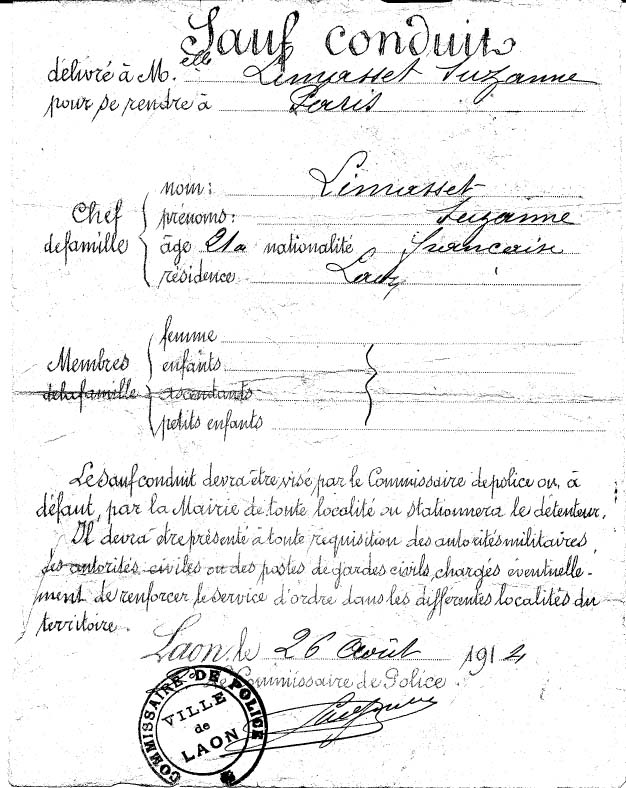 Sauf conduit
délivré à M.elle Limasset Suzanne
pour se rendre à Paris
Chef de famille
nom: Limasset
prénoms: Suzanne
âge 21a nationalité française
résidence Laon
Membres de la famille
femme
enfants
ascendants
petits enfants
Le sauf conduit devra être visé par le Commissaire de police ou, à
défaut, par la Mairie de toute localité ou stationnera le détenteur.
Il devra être présenté à toute requisition des autorités militaires,
des autorités civiles ou des postes de gardes civils, chargés éventuelle-
ment de renforcer le service d'ordre dans les différentes localités du
territoire.
Laon, le 26 Août 1914
Le Commissaire de Police
COMMISSAIRE DE POLICE
VILLE
de
LAON